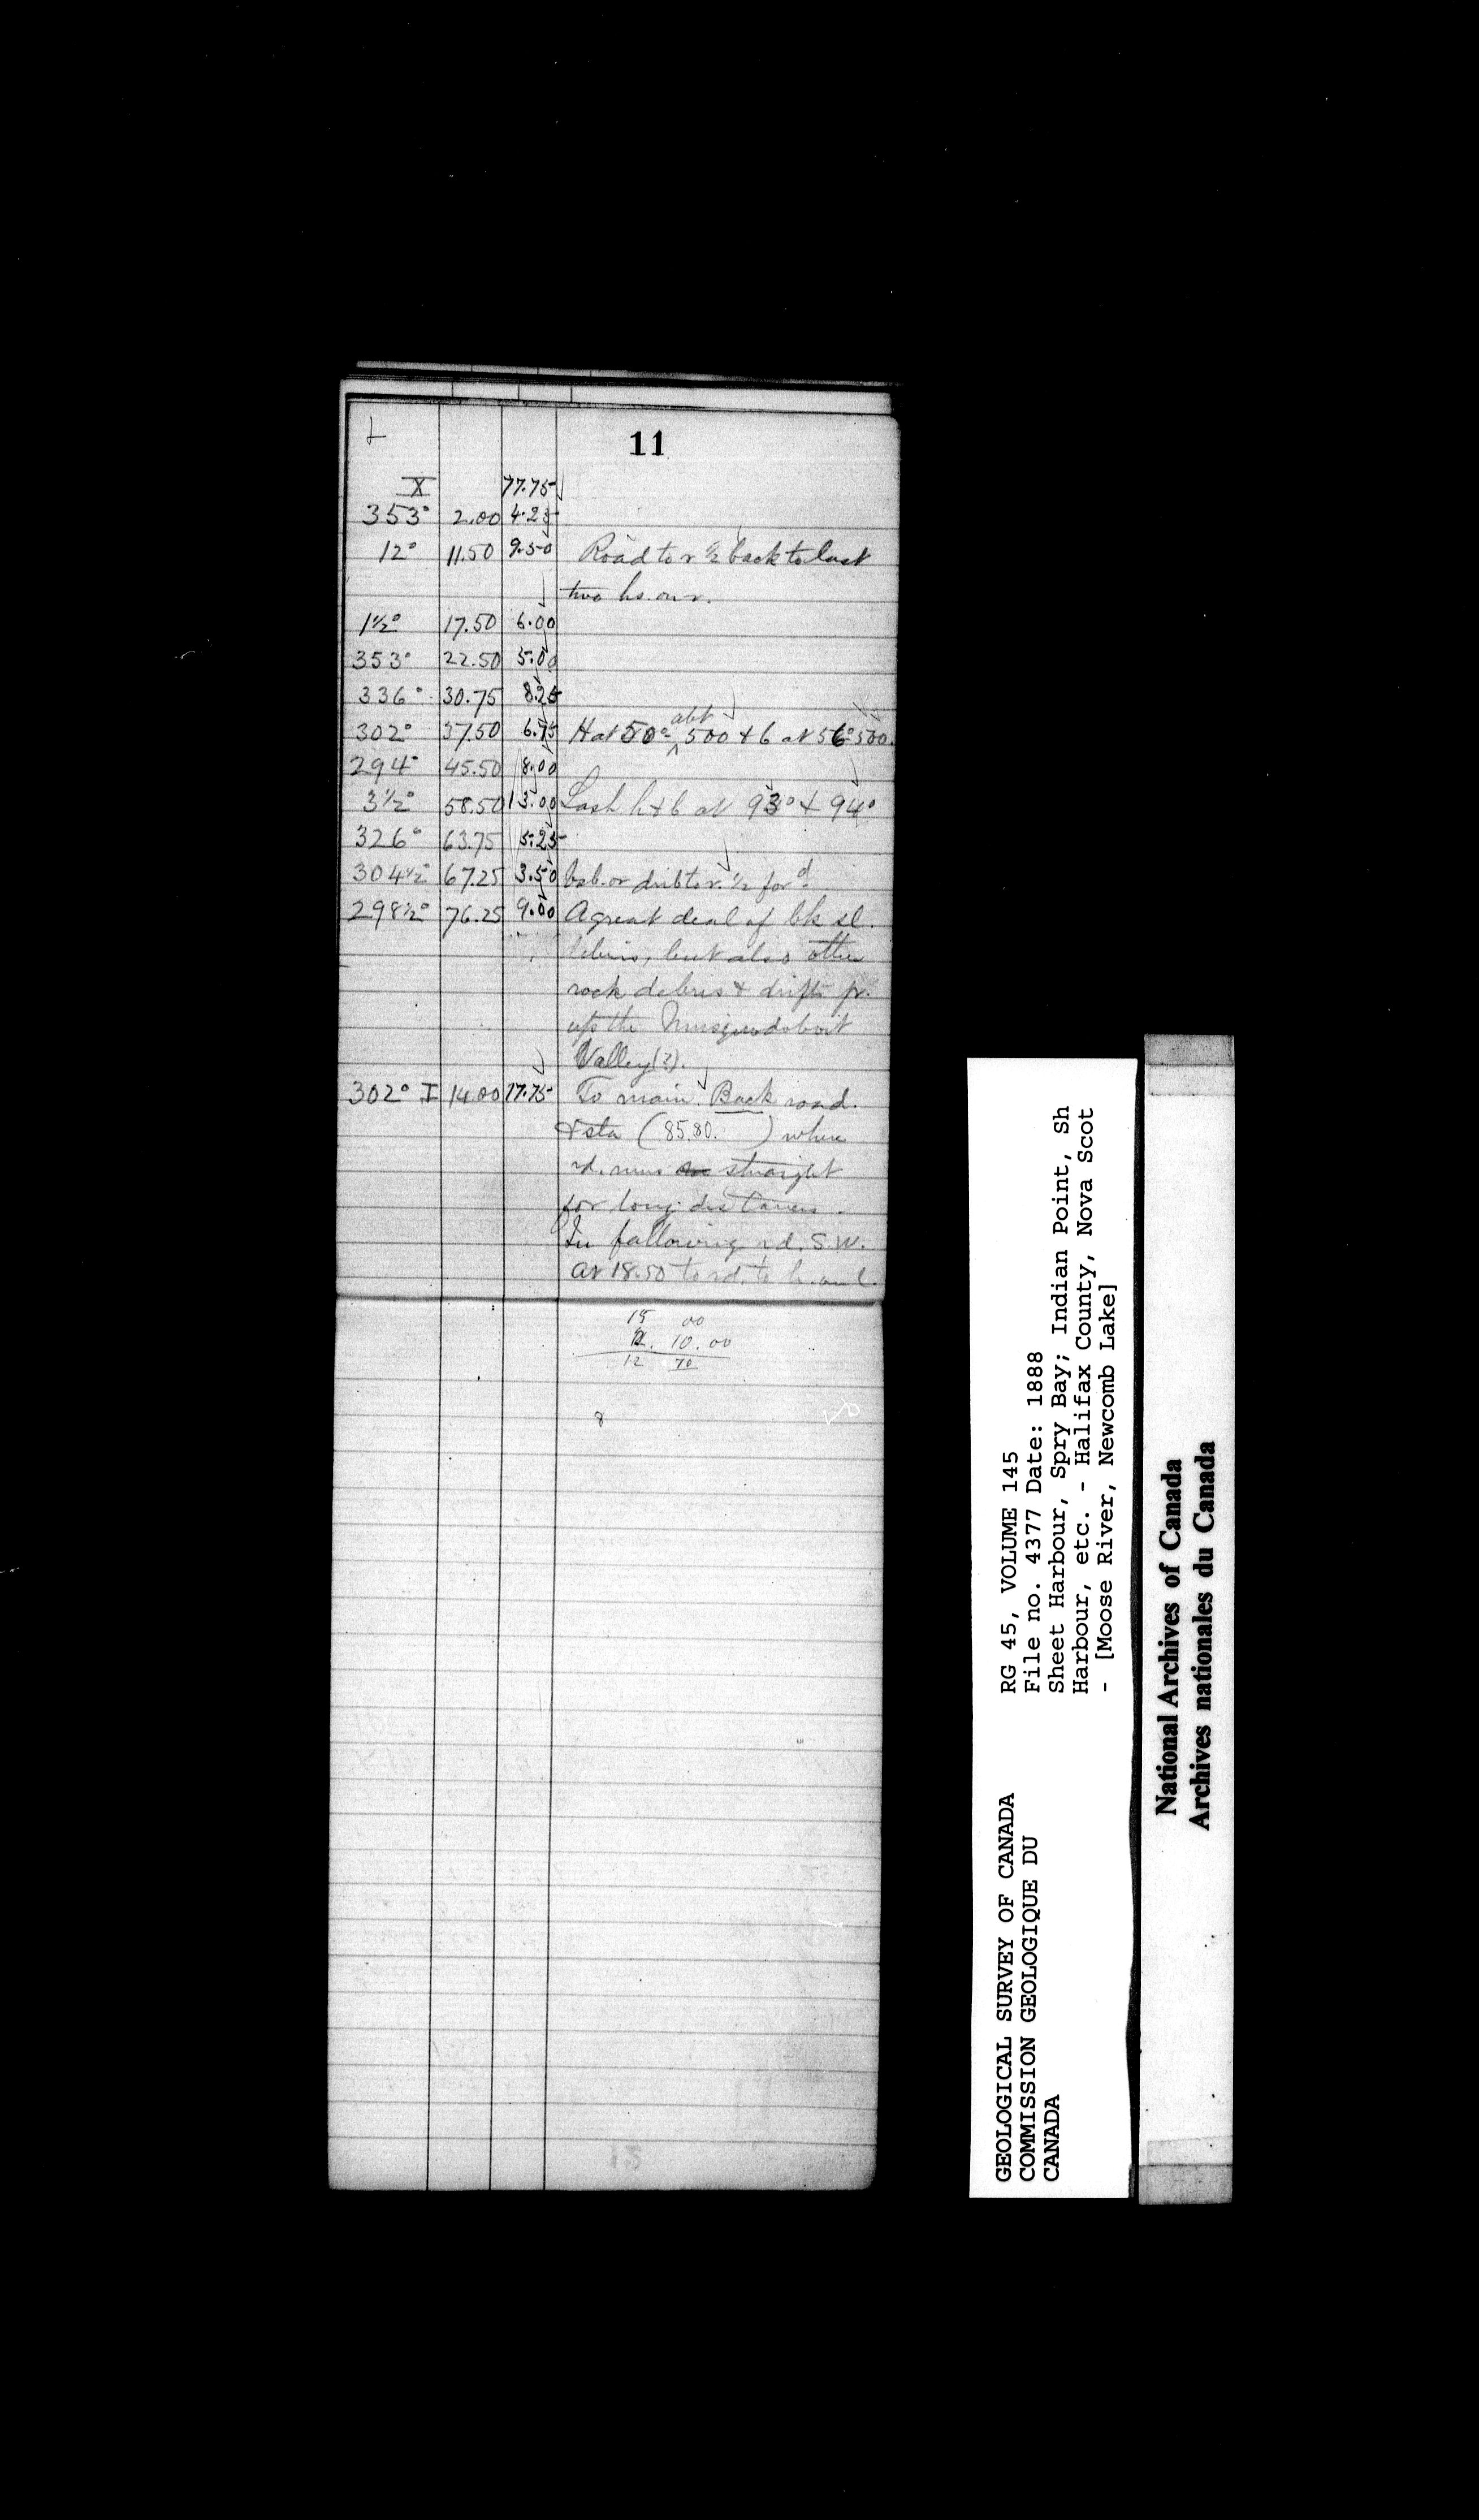 11
X 77.75
353° 2.00 4.25
12° 11.50 9.50 Road to r ½ back to last
two hs. on r.
1½° 17.50 6.00
353° 22.50 5.00
336° 30.75 8.25
302° 37.50 6.75 H at 50° abt 500 + b at 56° 500.
294° 45.50 8.00
3½° 58.50 13.00 Last h + b at 93° + 94°
326° 63.75 5.25
304½° 67.25 3.50 or r. ½ for d.
298½° 76.25 9.00 A great deal of bk sl.
debris, but also other
rock debris + drift fr.
up the Musquodoboit
Valley (?).
302° I 14.00 17.75 To main Back road.
+ sta (85.80. ) where
rd. runs straight
for long distances.
In following rd. S.W.
at 18.50 to rd. to h. on l.
15 00
12. 10.00
12 70
8
GEOLOGICAL SURVEY OF CANADA
COMMISSION GEOLOGIQUE DU
CANADA
RG 45, VOLUME 145
File no. 4377 Date: 1888
Sheet Harbour, Spry Bay; Indian Point, Sh
Harbour, etc. - Halifax County, Nova Scot
- [Moose River, Newcomb Lake]
National Archives of Canada
Archives nationales du Canada